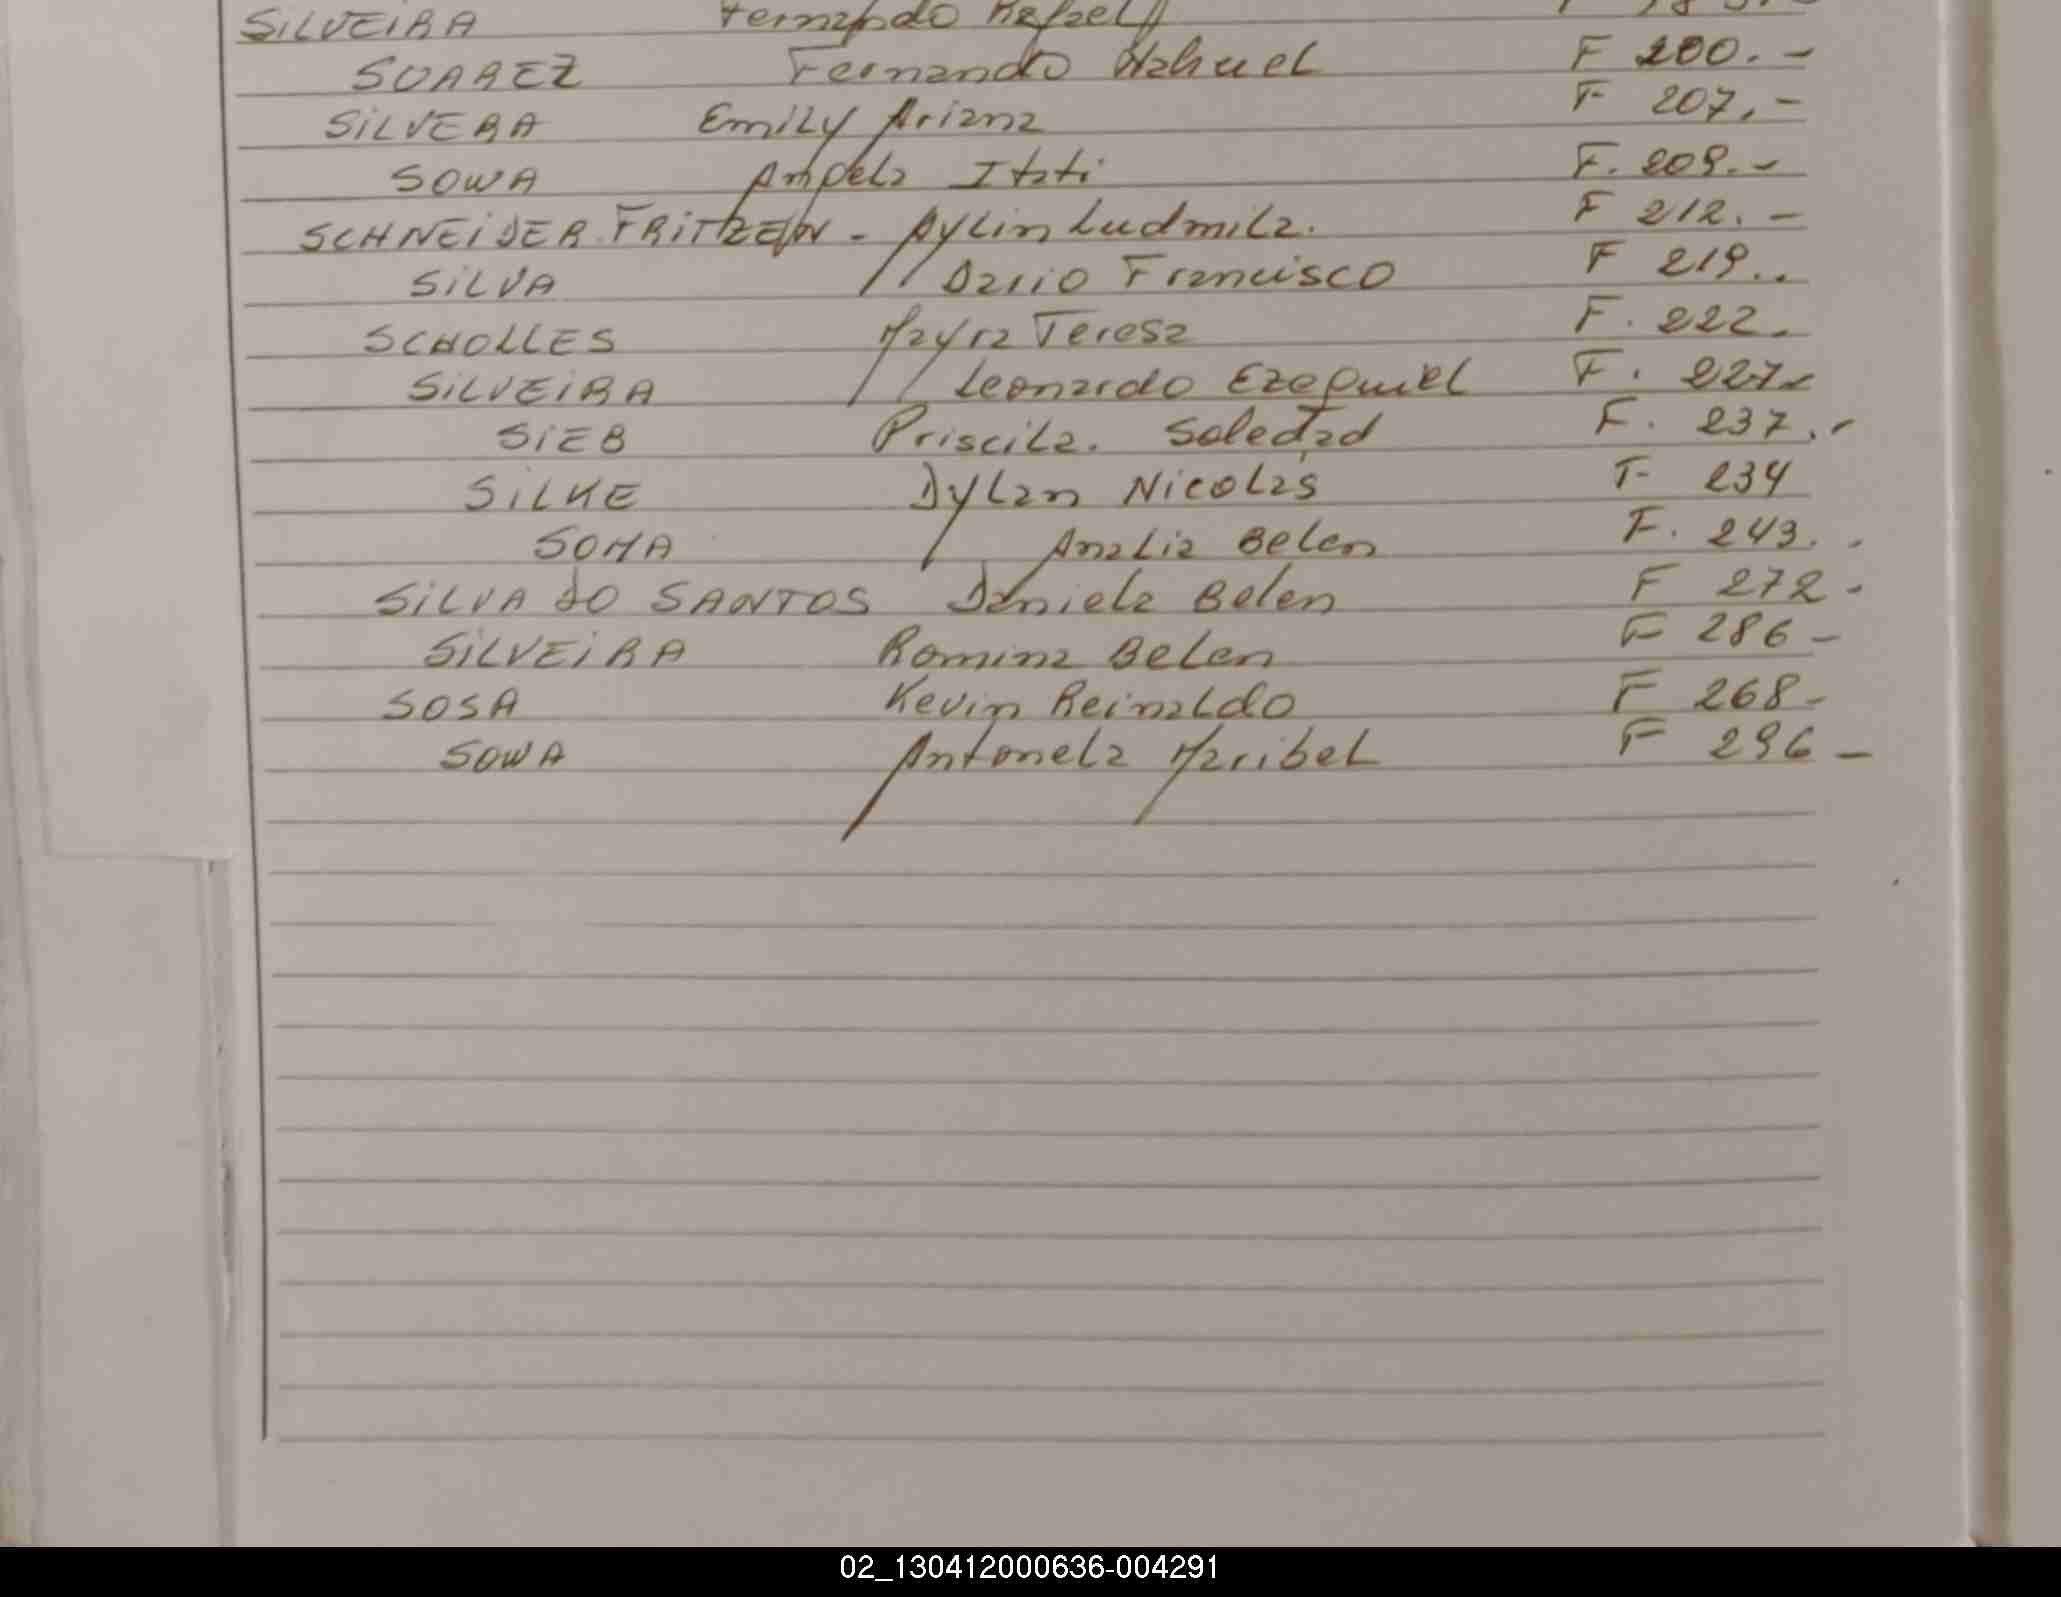 SiLVEiRA Fernando Rafael
SOAREZ Fernando Nahuel F 200.-
SiLVERA Emily Ariana F 207.-
SOWA Angela Itati F. 209.-
SCHNEiDER FRiTZEN - Aylin Ludmila. F 212.-
SiLVA Dario Francisco F 219..
SCHOLLES Mayra Teresa F. 222.
SiLVEiRA Leonardo Ezequiel F. 227.-
SiEB Priscila. Soledad F. 237.-
SiLKE Dylan Nicolas F 234
SOMA Analia Belen F. 243..
SiLVA DO SANTOS Daniela Belen F 272-
SiLVEiRA Romina Belen F 286-
SOSA Kevin Reinaldo F 268-
SOWA Antonela Maribel F 296-
02_130412000636-004291